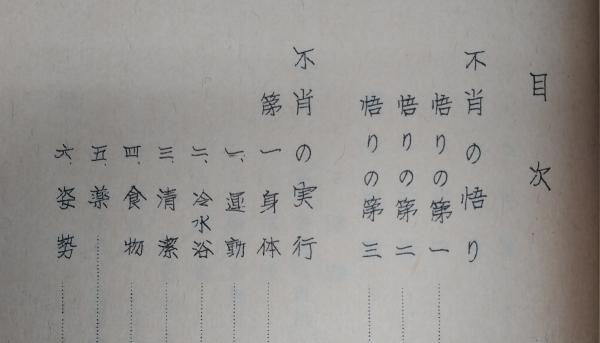 目次
不肖の悟り
悟りの第一
悟りの第二
悟りの第三
不肖の実行
第一身体
一、運動
二、冷水浴
三、清潔
四、食物
五、薬
六、姿勢